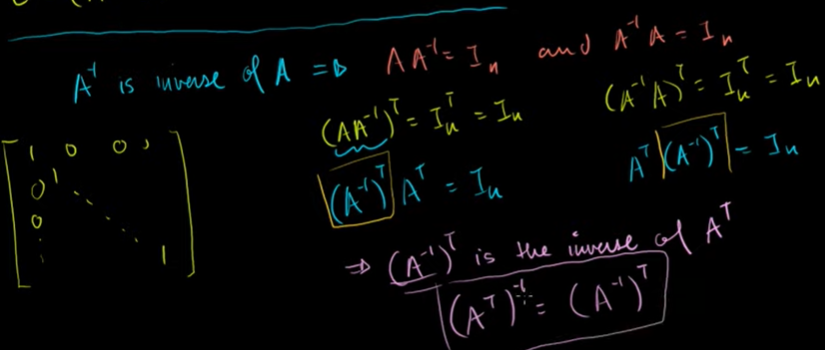 A⁻¹ is inverse of A ⇒ A A⁻¹ = Iₙ and A⁻¹ A = Iₙ
(AA⁻¹)ᵀ = Iₙᵀ = Iₙ (A⁻¹A)ᵀ = Iₙᵀ = Iₙ
(A⁻¹)ᵀ Aᵀ = Iₙ Aᵀ (A⁻¹)ᵀ = Iₙ
1 0 0
0 1
0
1
⇒ (A⁻¹)ᵀ is the inverse of Aᵀ
(Aᵀ)⁻¹ = (A⁻¹)ᵀ